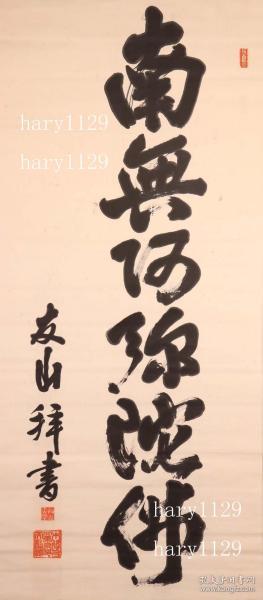 南無阿弥陀佛
友山拜書
hary1129
hary1129
hary1129
hary1129
hary1129
hary1129